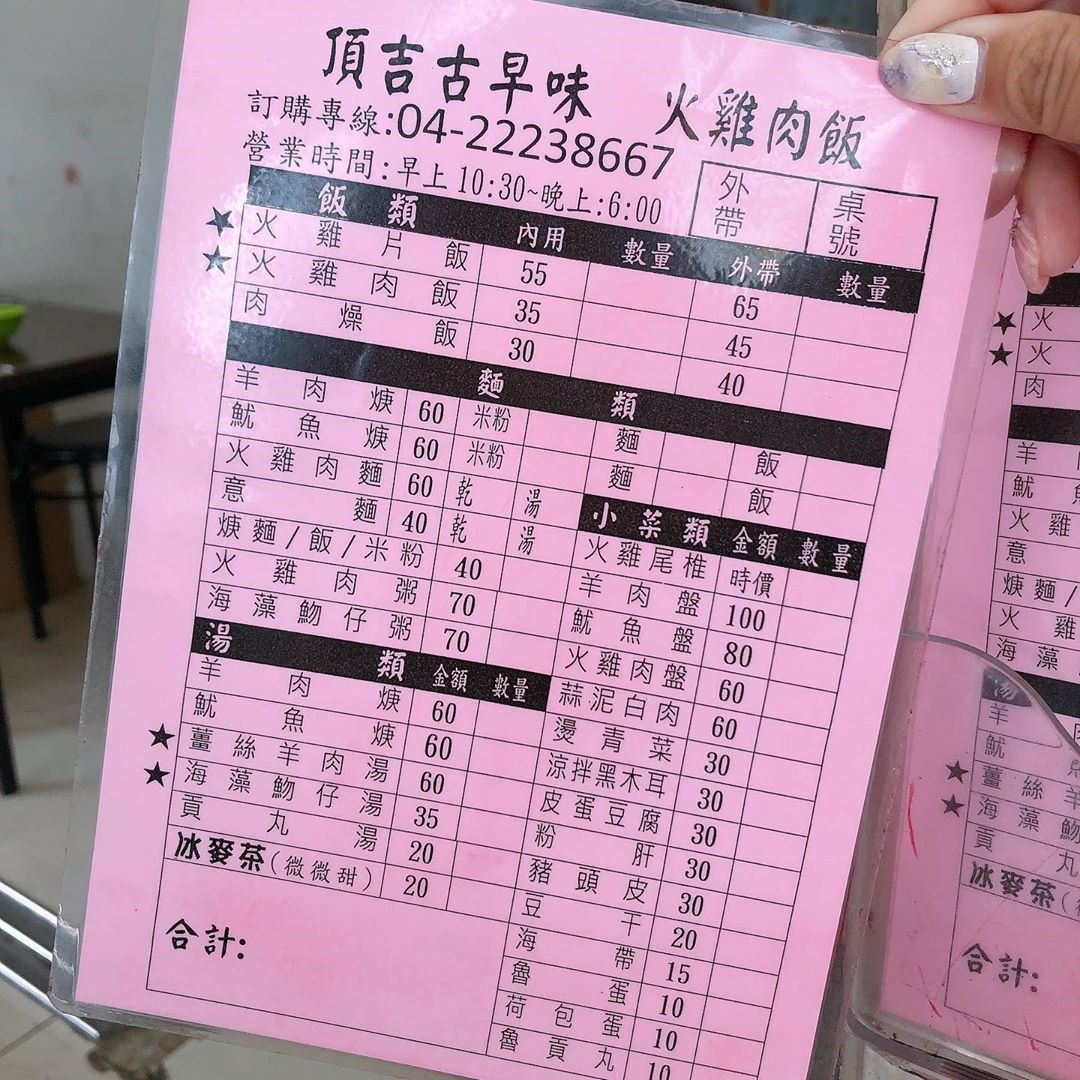 頂吉古早味 火雞肉飯
訂購專線:04-22238667
營業時間:早上10:30~晚上:6:00
外帶 桌號
飯類 內用 數量 外帶 數量
★ 火雞片飯 55 65
★ 火雞肉飯 35 45
肉燥飯 30 40
麵類
羊肉焿 60 米粉 麵 飯
魷魚焿 60 米粉 麵 飯
火雞肉麵 60 乾 湯
意麵 40 乾 湯
焿麵/飯/米粉 40
火雞肉粥 70
海藻魩仔粥 70
湯類 金額 數量
羊肉焿 60
魷魚焿 60
★ 薑絲羊肉湯 60
★ 海藻魩仔湯 35
貢丸湯 20
冰麥茶(微微甜) 20
合計:
小菜類 金額 數量
火雞尾椎 時價
羊肉盤 100
魷魚盤 80
火雞肉盤 60
蒜泥白肉 60
燙青菜 30
涼拌黑木耳 30
皮蛋豆腐 30
粉肝 30
豬頭皮 30
豆干 20
海帶 15
魯蛋 10
荷包蛋 10
魯貢丸 10
★ 火
★ 火
肉
羊
魷
火雞
意
焿麵/
火雞
海藻
湯
羊
魷
★ 薑絲羊
★ 海藻魩
貢丸
冰麥茶(
合計: